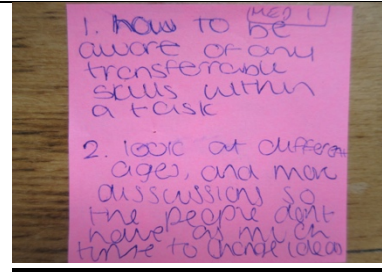 MED 1
1. how to be
aware of any
transferable
skills within
a task
2. look at different
ages, and more
disscussions so
the people dont
have as much
time to change ideas